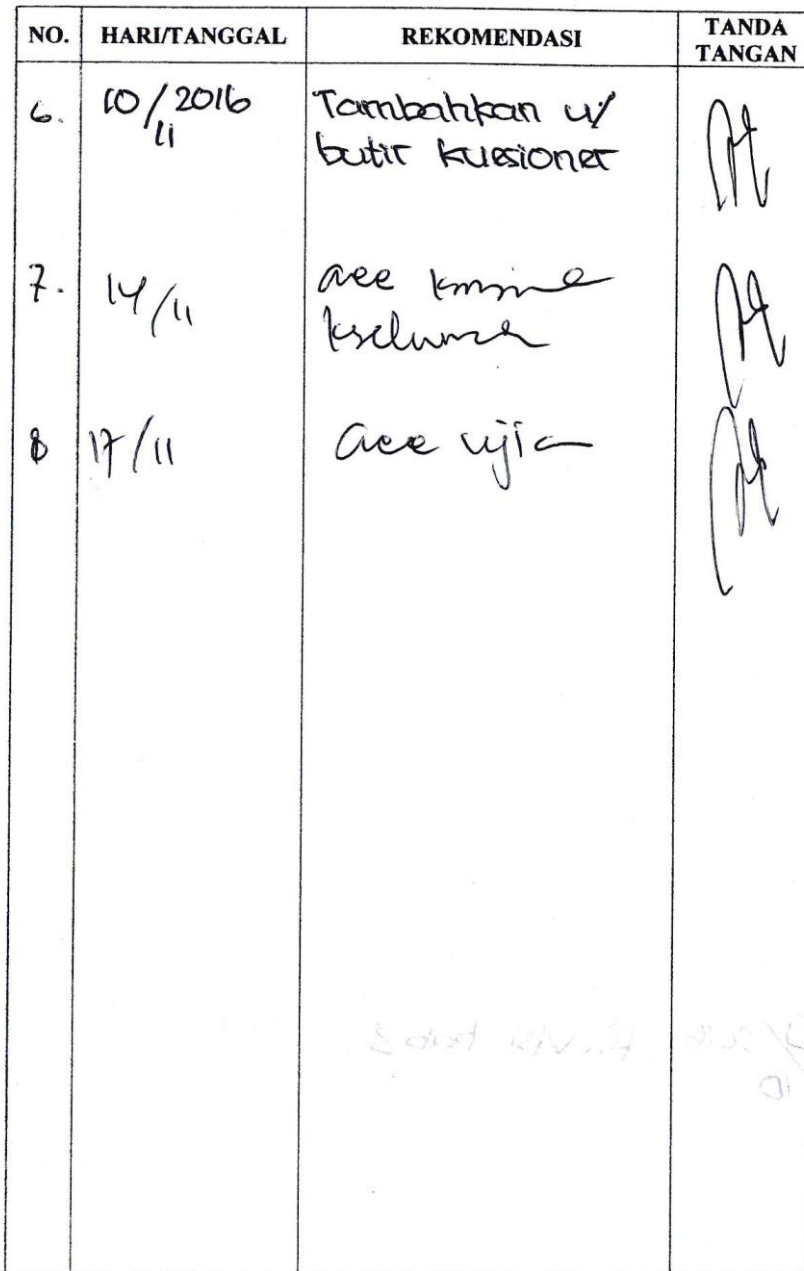 NO. HARI/TANGGAL REKOMENDASI TANDA TANGAN
6. 10/2016 Tambahkan u/
11 butir kuesioner
7. 14/11 acc
8 17/11 acc ujian